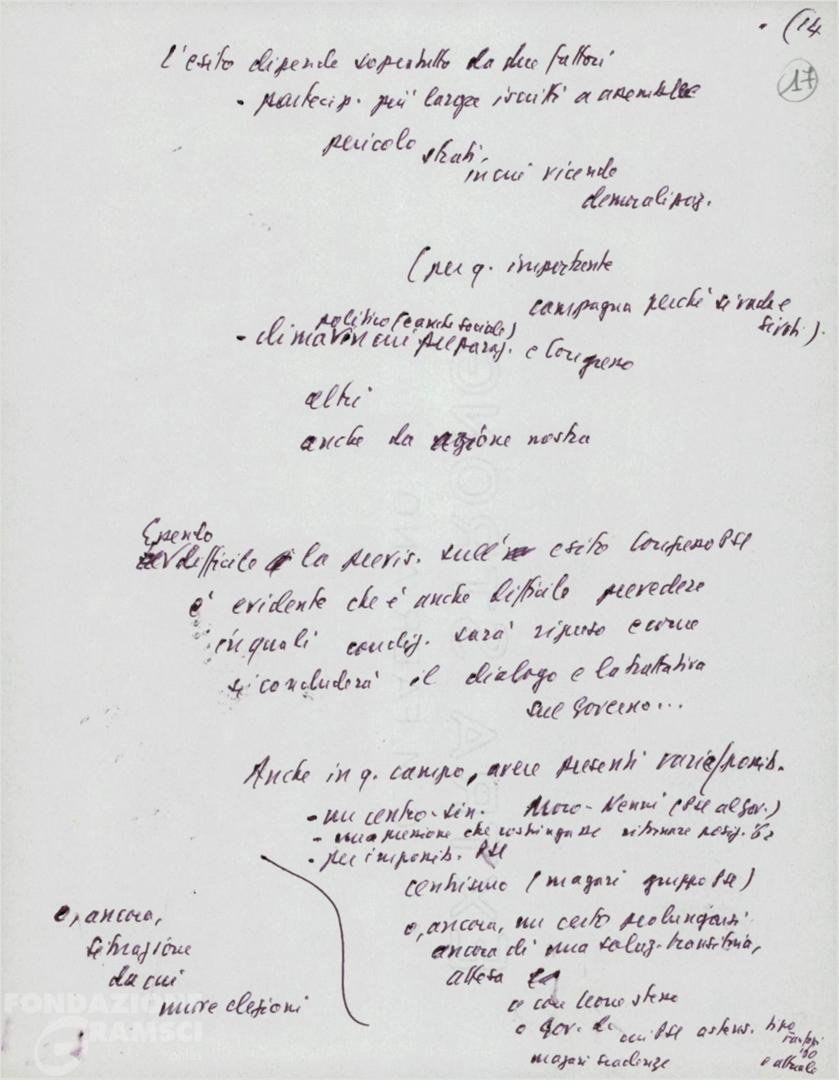 (14
17
L'esito dipende soprattutto da due fattori
- partecip. più larga iscritti a assemblee
pericolo strati,
in cui vicende
demoralizzaz.
(per q. importante
campagna perché si vada e
si voti).
politico (e anche sociale)
- clima in cui preparaz. e Congresso
altri
anche da azione nostra
E perciò
difficile la previs. sull' esito Congresso PSI
è evidente che è anche difficile prevedere
in quali condiz. sarà ripreso e come
si concluderà il dialogo e la trattativa
sul governo...
Anche in q. campo, avere presenti varie possib.
- un centro-sin. Moro-Nenni (PSI al gov.)
- una pressione che costringa PSI ritornare posiz. '62
- per imposib. PSI
centrismo (magari gruppo PSI)
o, ancora, un certo prolungarsi
ancora di una soluz. transitoria,
attesa
o con Leone stesso
o gov. di cui PSI astens. tipo
magari scadenze
o attuale
o, ancora,
situazione
da cui
nuove elezioni
FONDAZIONE
GRAMSCI
onlus